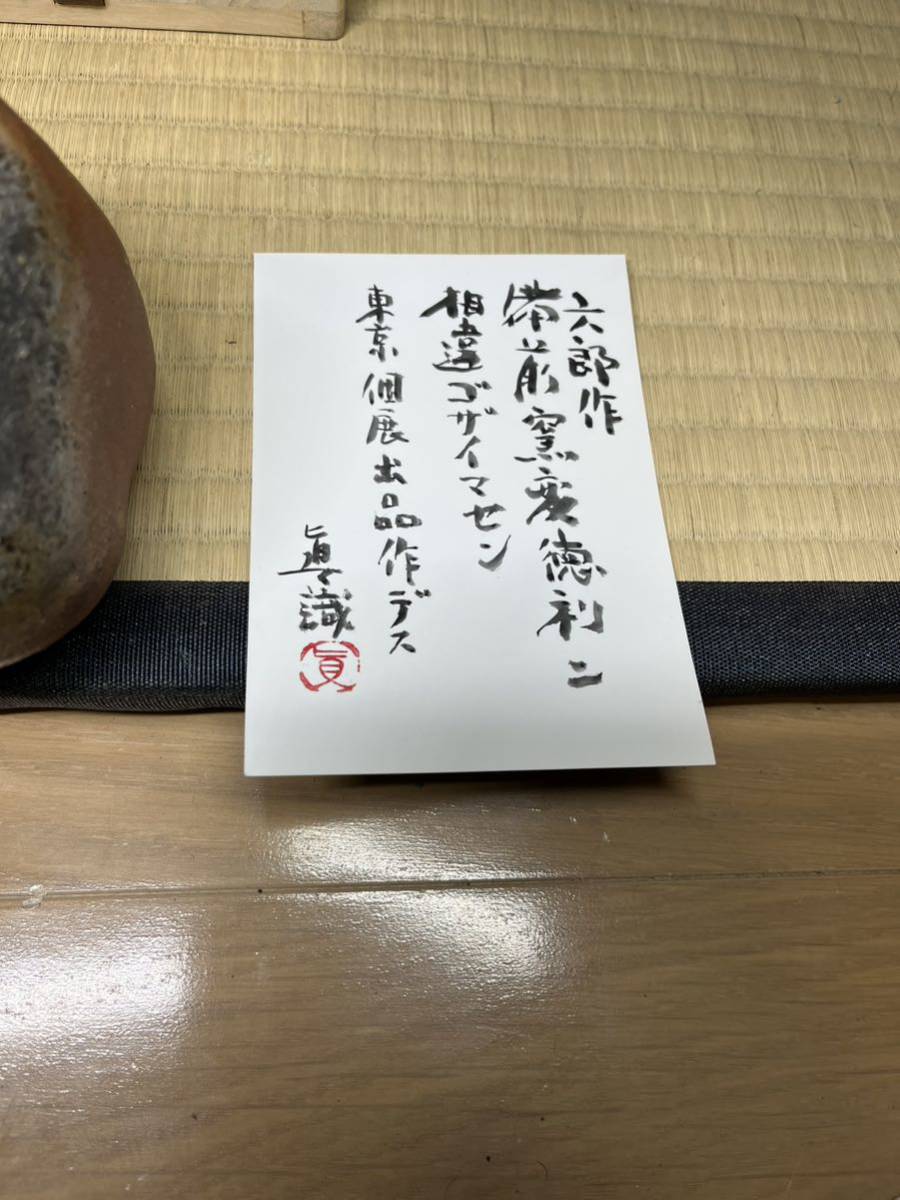 六郎作
備前窯変徳利ニ
相違ゴザイマセン
東京個展出品作デス
眞識
眞